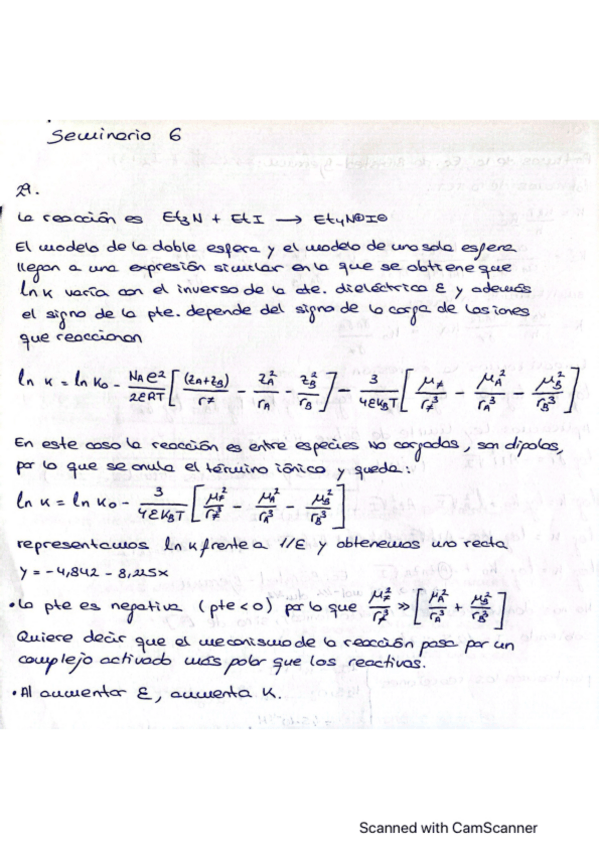 Seminario 6
29.
La reacción es Et3N + EtI → Et4N⊕I⊖
El modelo de la doble esfera y el modelo de una sola esfera
llegan a una expresión similar en la que se obtiene que
ln k varía con el inverso de la cte. dieléctrica ε y además
el signo de la pte. depende del signo de la carga de los iones
que reaccionan
ln k = ln k0 - NAe²/2εRT [(zA+zB)/r≠ - zA²/rA - zB²/rB] - 3/4εkBT [μ≠/r≠³ - μA²/rA³ - μB²/rB³]
En este caso la reacción es entre especies no cargadas, son dipolos,
por lo que se anula el término iónico y queda:
ln k = ln k0 - 3/4εkBT [μ≠²/r≠³ - μA²/rA³ - μB²/rB³]
representamos ln k frente a 1/ε y obtenemos una recta
y = -4,842 - 8,225x
• La pte es negativa (pte < 0) por lo que μ≠²/r≠³ >> [μA²/rA³ + μB²/rB³]
Quiere decir que el mecanismo de la reacción pasa por un
complejo activado más polar que los reactivos.
• Al aumentar ε, aumenta k.
Scanned with CamScanner